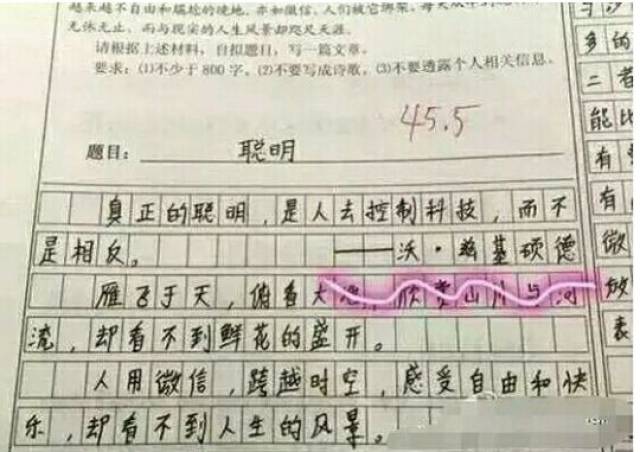 越来越不自由和尴尬的境地。亦如微信，人们被它绑架，每天从早
无休无止，而与现实的人生风景却咫尺天涯。
请根据上述材料，自拟题目，写一篇文章。
要求：(1)不少于800字。(2)不要写成诗歌。(3)不要透露个人相关信息。
45.5
题目：聪明
真正的聪明，是人去控制科技，而不
是相反。 ——沃·兹基硕德
雁飞于天，俯看大地，欣赏山川与河
流，却看不到鲜花的盛开。
人用微信，跨越时空，感受自由和快
乐，却看不到人生的风景。
多的
二者
能比
有
有
微
表